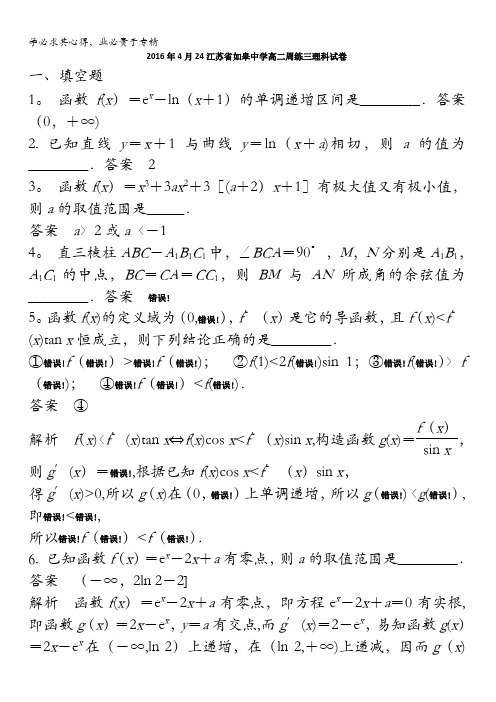 学必求其心得，业必贵于专精
2016年4月24江苏省如皋中学高二周练三理科试卷
一、填空题
1。 函数f(x)＝eˣ－ln（x＋1）的单调递增区间是________．答案
（0，＋∞)
2. 已知直线y＝x＋1与曲线y＝ln（x＋a)相切，则a的值为
________．答案 2
3。 函数f(x）＝x³＋3ax²＋3［(a＋2）x＋1］有极大值又有极小值，
则a的取值范围是_____．
答案 a〉2或a〈－1
4。 直三棱柱ABC－A₁B₁C₁中，∠BCA＝90°，M，N分别是A₁B₁，
A₁C₁的中点，BC＝CA＝CC₁，则BM与AN所成角的余弦值为
________．答案 错误!
5。函数f(x)的定义域为（0,错误!），f′（x）是它的导函数，且f（x)<f′
(x)tan x恒成立，则下列结论正确的是________．
①错误!f（错误!）>错误!f（错误!)； ②f(1)<2f(错误!)sin 1；③错误!f(错误!)〉f
（错误!)； ④错误!f（错误!）<f(错误!)．
答案 ④
解析 f（x)〈f′(x)tan x⇔f(x)cos x<f′（x)sin x,构造函数g(x)＝f（x）/sin x，
则g′（x）＝错误!,根据已知f(x)cos x<f′（x）sin x，
得g′（x)>0,所以g（x)在（0，错误!）上单调递增，所以g（错误!)〈g(错误!)，
即错误!<错误!，
所以错误!f（错误!）<f（错误!）．
6. 已知函数f（x）＝eˣ－2x＋a有零点，则a的取值范围是________．
答案 （－∞，2ln 2－2]
解析 函数f(x）＝eˣ－2x＋a有零点，即方程eˣ－2x＋a＝0有实根，
即函数g（x）＝2x－eˣ，y＝a有交点,而g′（x)＝2－eˣ，易知函数g(x）
＝2x－eˣ在（－∞,ln 2）上递增，在（ln 2,＋∞)上递减，因而g（x）